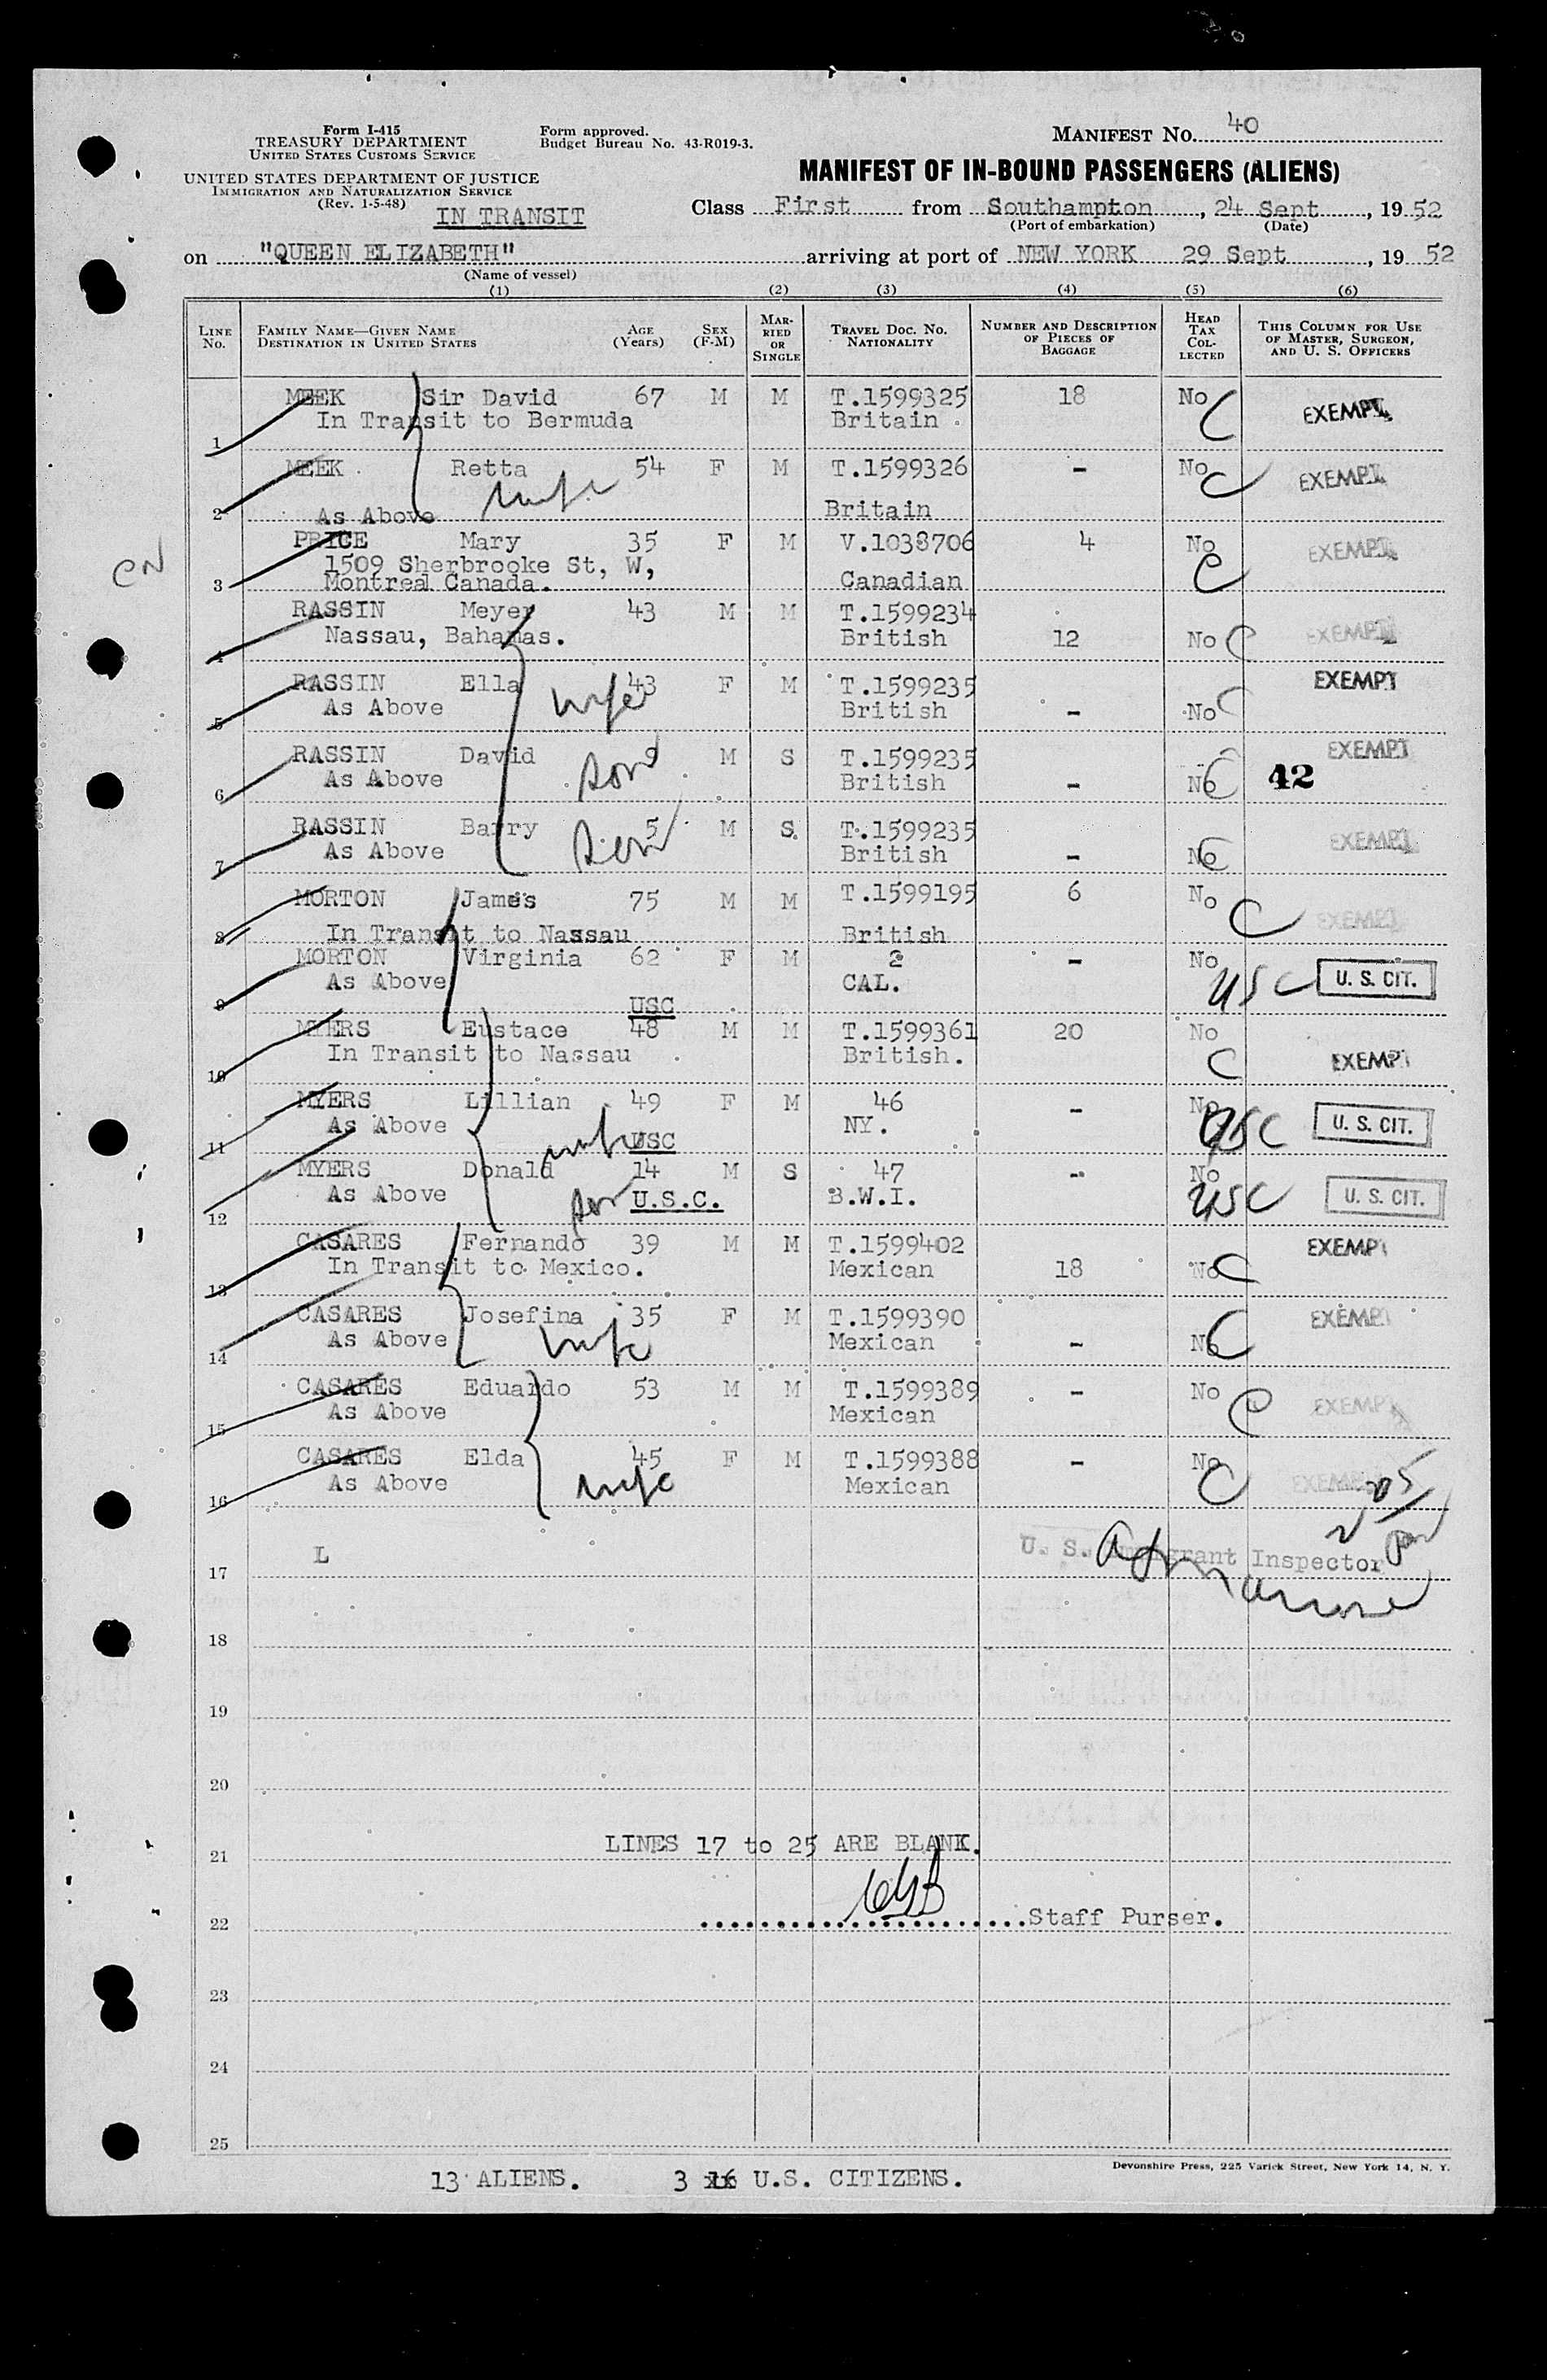 Form I-415
TREASURY DEPARTMENT
UNITED STATES CUSTOMS SERVICE
UNITED STATES DEPARTMENT OF JUSTICE
IMMIGRATION AND NATURALIZATION SERVICE
(Rev. 1-5-48)
IN TRANSIT
Form approved.
Budget Bureau No. 43-R019-3.
MANIFEST No. 40
MANIFEST OF IN-BOUND PASSENGERS (ALIENS)
Class First from Southampton, 24 Sept, 1952
(Port of embarkation) (Date)
on "QUEEN ELIZABETH" arriving at port of NEW YORK 29 Sept, 1952
(Name of vessel)
(1) (2) (3) (4) (5) (6)
LINE No. FAMILY NAME—GIVEN NAME DESTINATION IN UNITED STATES AGE (Years) SEX (F-M) MARRIED OR SINGLE TRAVEL DOC. NO. NATIONALITY NUMBER AND DESCRIPTION OF PIECES OF BAGGAGE HEAD TAX COLLECTED THIS COLUMN FOR USE OF MASTER, SURGEON, AND U. S. OFFICERS
MEEK Sir David 67 M M T.1599325 18 No C EXEMPT
In Transit to Bermuda Britain
1
MEEK Retta 54 F M T.1599326 - No C EXEMPT
wife
2 As Above Britain
PRICE Mary 35 F M V.1038706 4 No C EXEMPT
CN
1509 Sherbrooke St, W,
3 Montreal Canada. Canadian
RASSIN Meyer 43 M M T.1599234
4 Nassau, Bahamas. British 12 No C EXEMPT
RASSIN Ella wife 43 F M T.1599235 EXEMPT
5 As Above British - No C
RASSIN David son 9 M S T.1599235 EXEMPT
6 As Above British - No C 42
RASSIN Barry son 5 M S. T.1599235 EXEMPT
7 As Above British - No C
MORTON James 75 M M T.1599195 6 No C EXEMPT
8 In Transit to Nassau British
MORTON Virginia 62 F M 2 - No USC U. S. CIT.
9 As Above CAL.
USC
MYERS Eustace 48 M M T.1599361 20 No
10 In Transit to Nassau British. C EXEMPT
MYERS Lillian 49 F M 46 - No USC U. S. CIT.
11 As Above wife USC NY.
MYERS Donald 14 M S 47 - No USC U. S. CIT.
12 As Above son U.S.C. B.W.I.
CASARES Fernando 39 M M T.1599402 EXEMPT
13 In Transit to Mexico. Mexican 18 No C
CASARES Josefina 35 F M T.1599390 EXEMPT
14 As Above wife Mexican - No C
CASARES Eduardo 53 M M T.1599389 - No C EXEMPT
15 As Above Mexican
CASARES Elda 45 F M T.1599388 - No C EXEMPT
16 As Above wife Mexican
17 L U. S. Immigrant Inspector
18
19
20
21 LINES 17 to 25 ARE BLANK.
22 Staff Purser.
23
24
25
Devonshire Press, 225 Varick Street, New York 14, N. Y.
13 ALIENS. 3 16 U.S. CITIZENS.